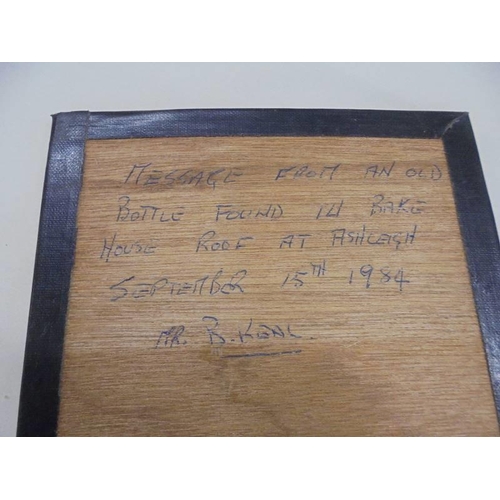 MESSAGE FROM AN OLD
BOTTLE FOUND IN BAKE
HOUSE ROOF AT ASHLEIGH
SEPTEMBER 15TH 1984
MR. B. KEAL.